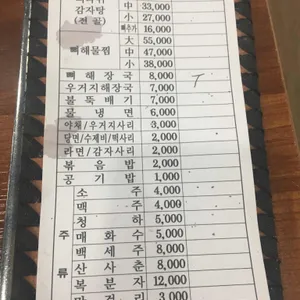 中 33,000
감자탕 小 27,000
(전골) 뼈추가 16,000
大 55,000
뼈해물찜 中 47,000
小 38,000
뼈해장국 8,000
우거지해장국 7,000
불뚝배기 7,000
물냉면 6,000
야채/우거지사리 3,000
당면/수제비/떡사리 2,000
라면/감자사리 2,000
볶음밥 2,000
공기밥 1,000
주류
소주 4,000
맥주 4,000
청하 5,000
매화수 5,000
백세주 8,000
산사춘 8,000
복분자 12,000
막걸리 3,000